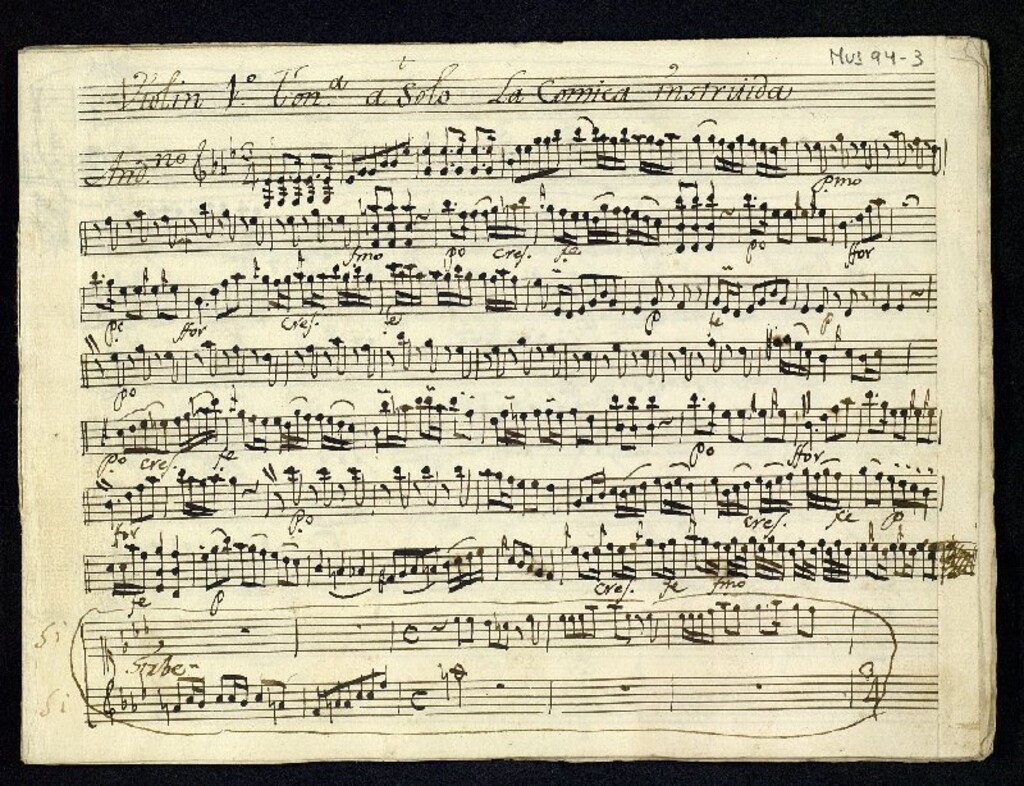 Mus 94-3
Violin 1.º Ton.ª a Solo La Comica instruida
And.no
3/4
Pmo
fmo po cres. fe po ffor
po ffor cres. fe P fe P
po
po cres. fe po ffor
for P.o cres. fe P
fe P cres. fe fmo
Si
C
3/4
Si
C